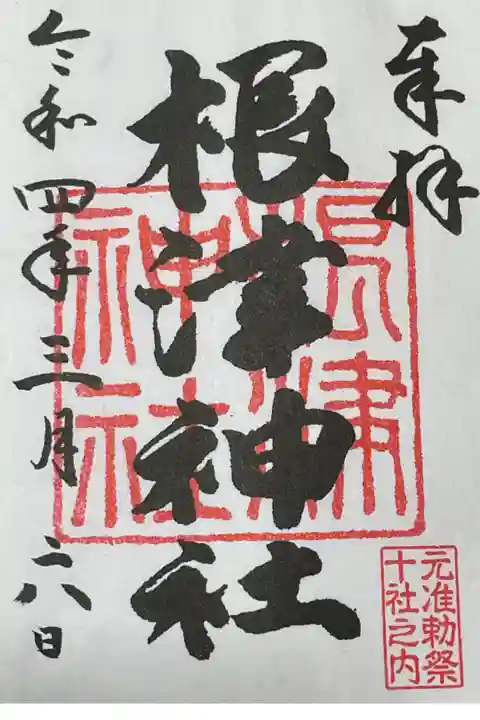 奉拝
根津神社
根津神社
元准勅祭
十社之内
令和四年三月二六日